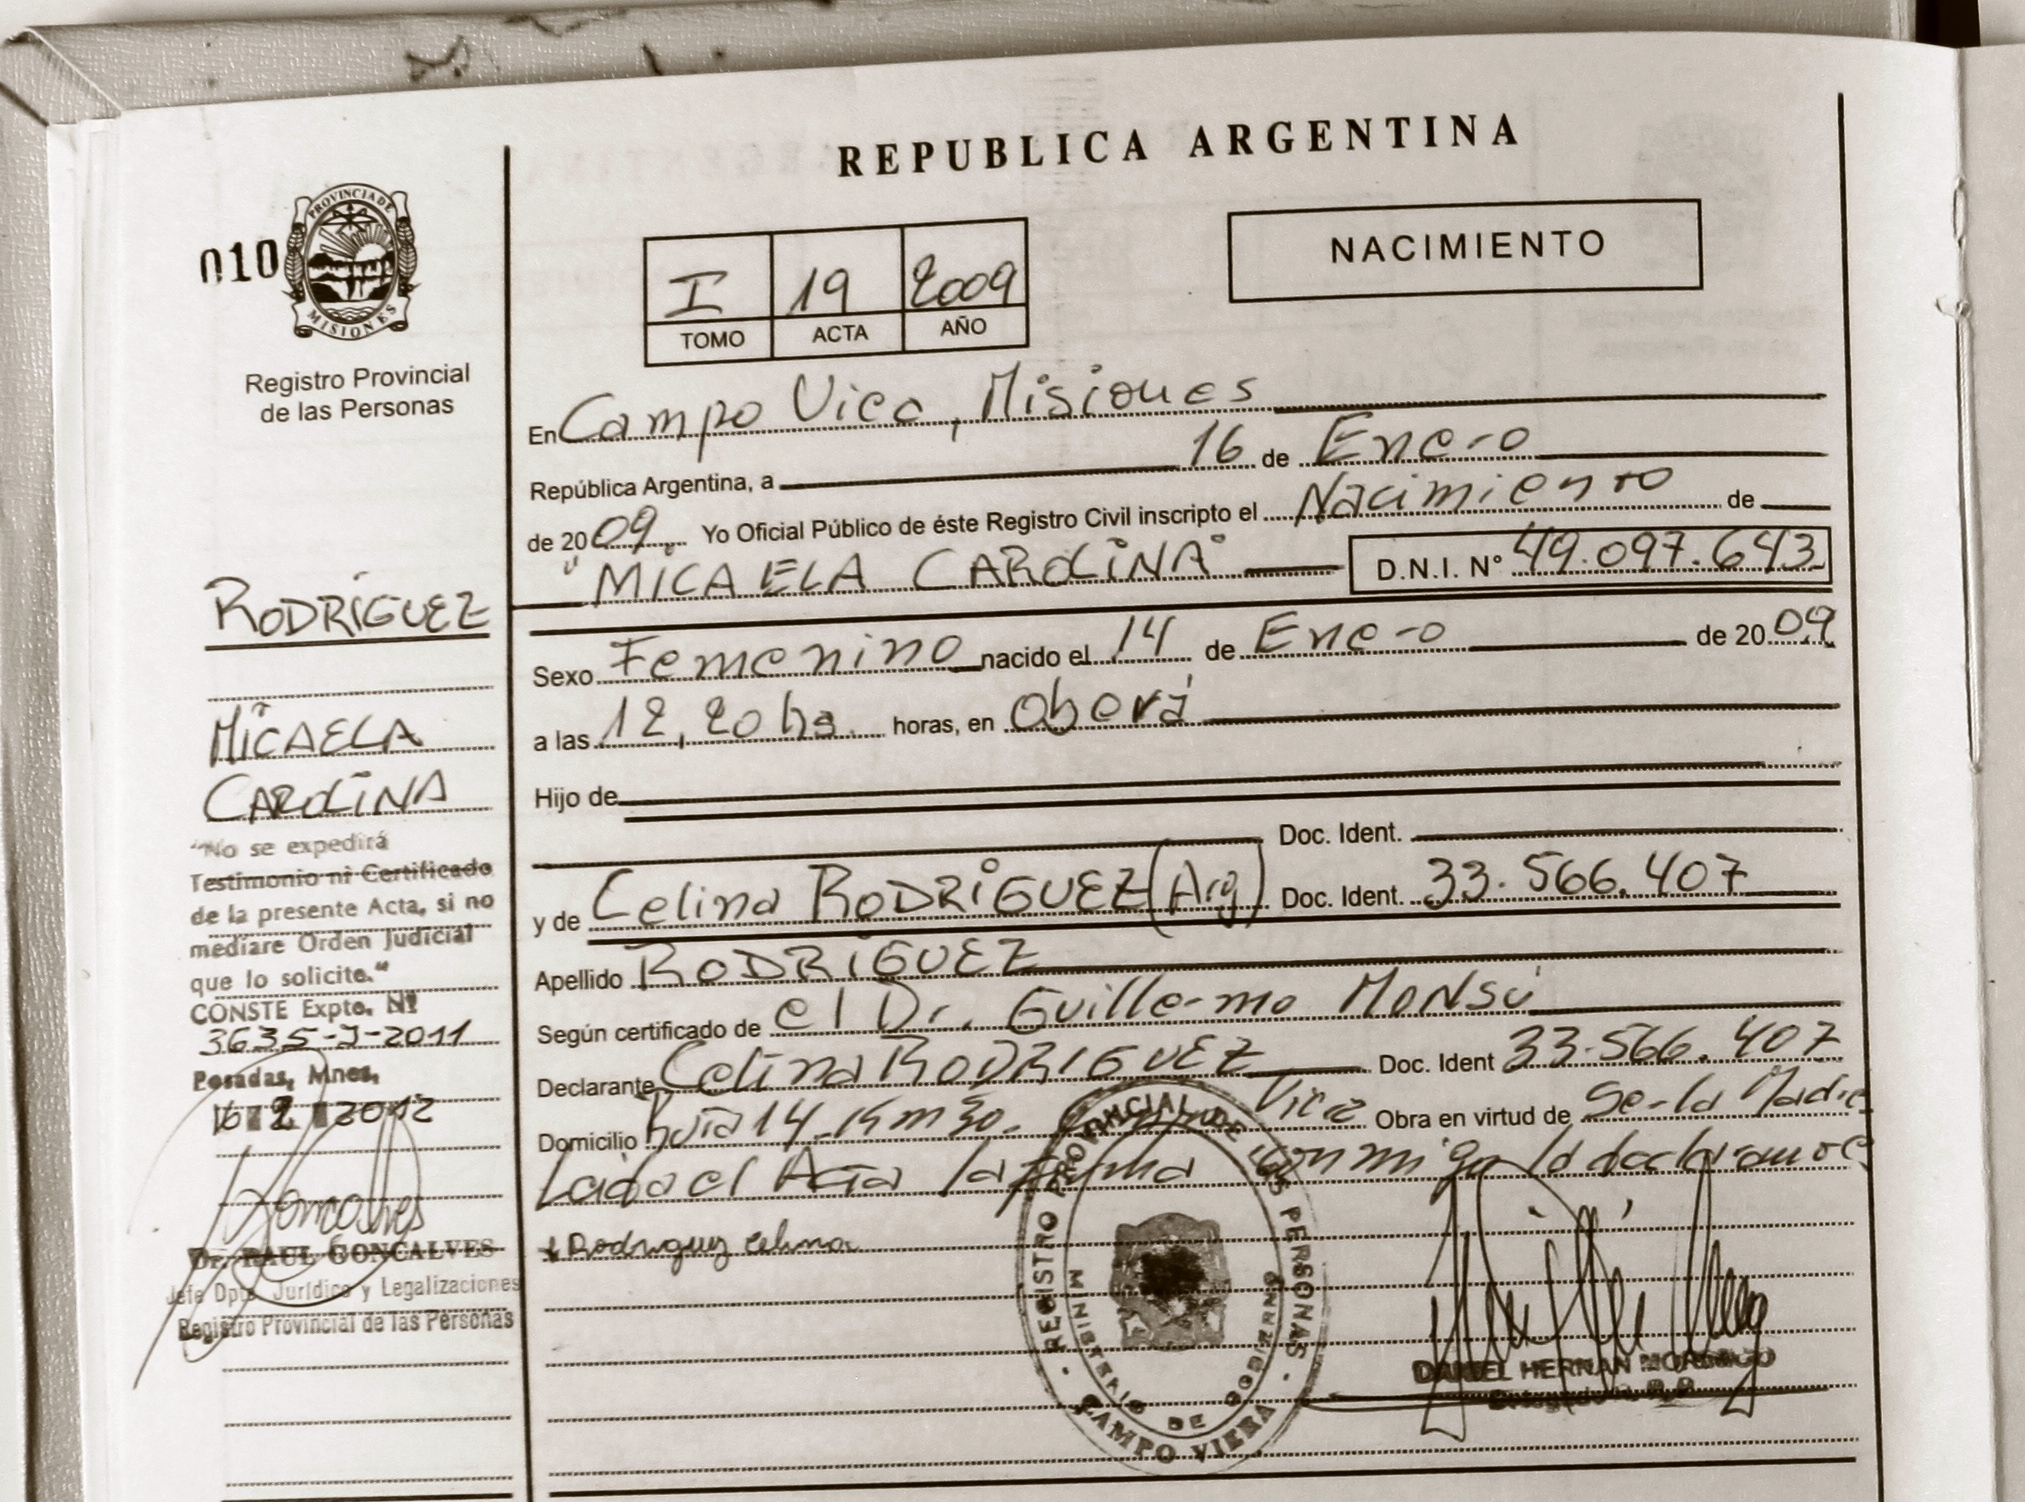 REPUBLICA ARGENTINA
010
PROVINCIA DE
MISIONES
Registro Provincial
de las Personas
I 19 2009
TOMO ACTA AÑO
NACIMIENTO
En Campo Viera, Misiones
República Argentina, a 16 de Enero
de 2009. Yo Oficial Público de éste Registro Civil inscripto el Nacimiento de
"MICAELA CAROLINA" D.N.I. Nº 49.097.643
Sexo Femenino nacido el 14 de Enero de 2009
a las 12,20 hs. horas, en Oberá
Hijo de
Doc. Ident.
y de Celina RODRÍGUEZ (Arg) Doc. Ident. 33.566.407
Apellido RODRÍGUEZ
Según certificado de el Dr. Guillermo MONSÚ
Declarante Celina RODRIGUEZ Doc. Ident 33.566.407
Domicilio Ruta 14 Km 30. Viera Obra en virtud de Ser la Madre
Leida el Acta la firma conmigo la declarante
Rodriguez Celina
RODRÍGUEZ
MICAELA
CAROLINA
"No se expedirá
Testimonio ni Certificado
de la presente Acta, si no
mediare Orden Judicial
que lo solicite."
CONSTE Expte. Nº
3635-J-2011
Posadas, Mnes,
16 2 2012
Dr. RAUL GONCALVES
Jefe Dpto Jurídico y Legalizaciones
Registro Provincial de las Personas
REGISTRO PROVINCIAL DE LAS PERSONAS
MINISTERIO DE GOBIERNO
CAMPO VIERA
DANIEL HERNAN